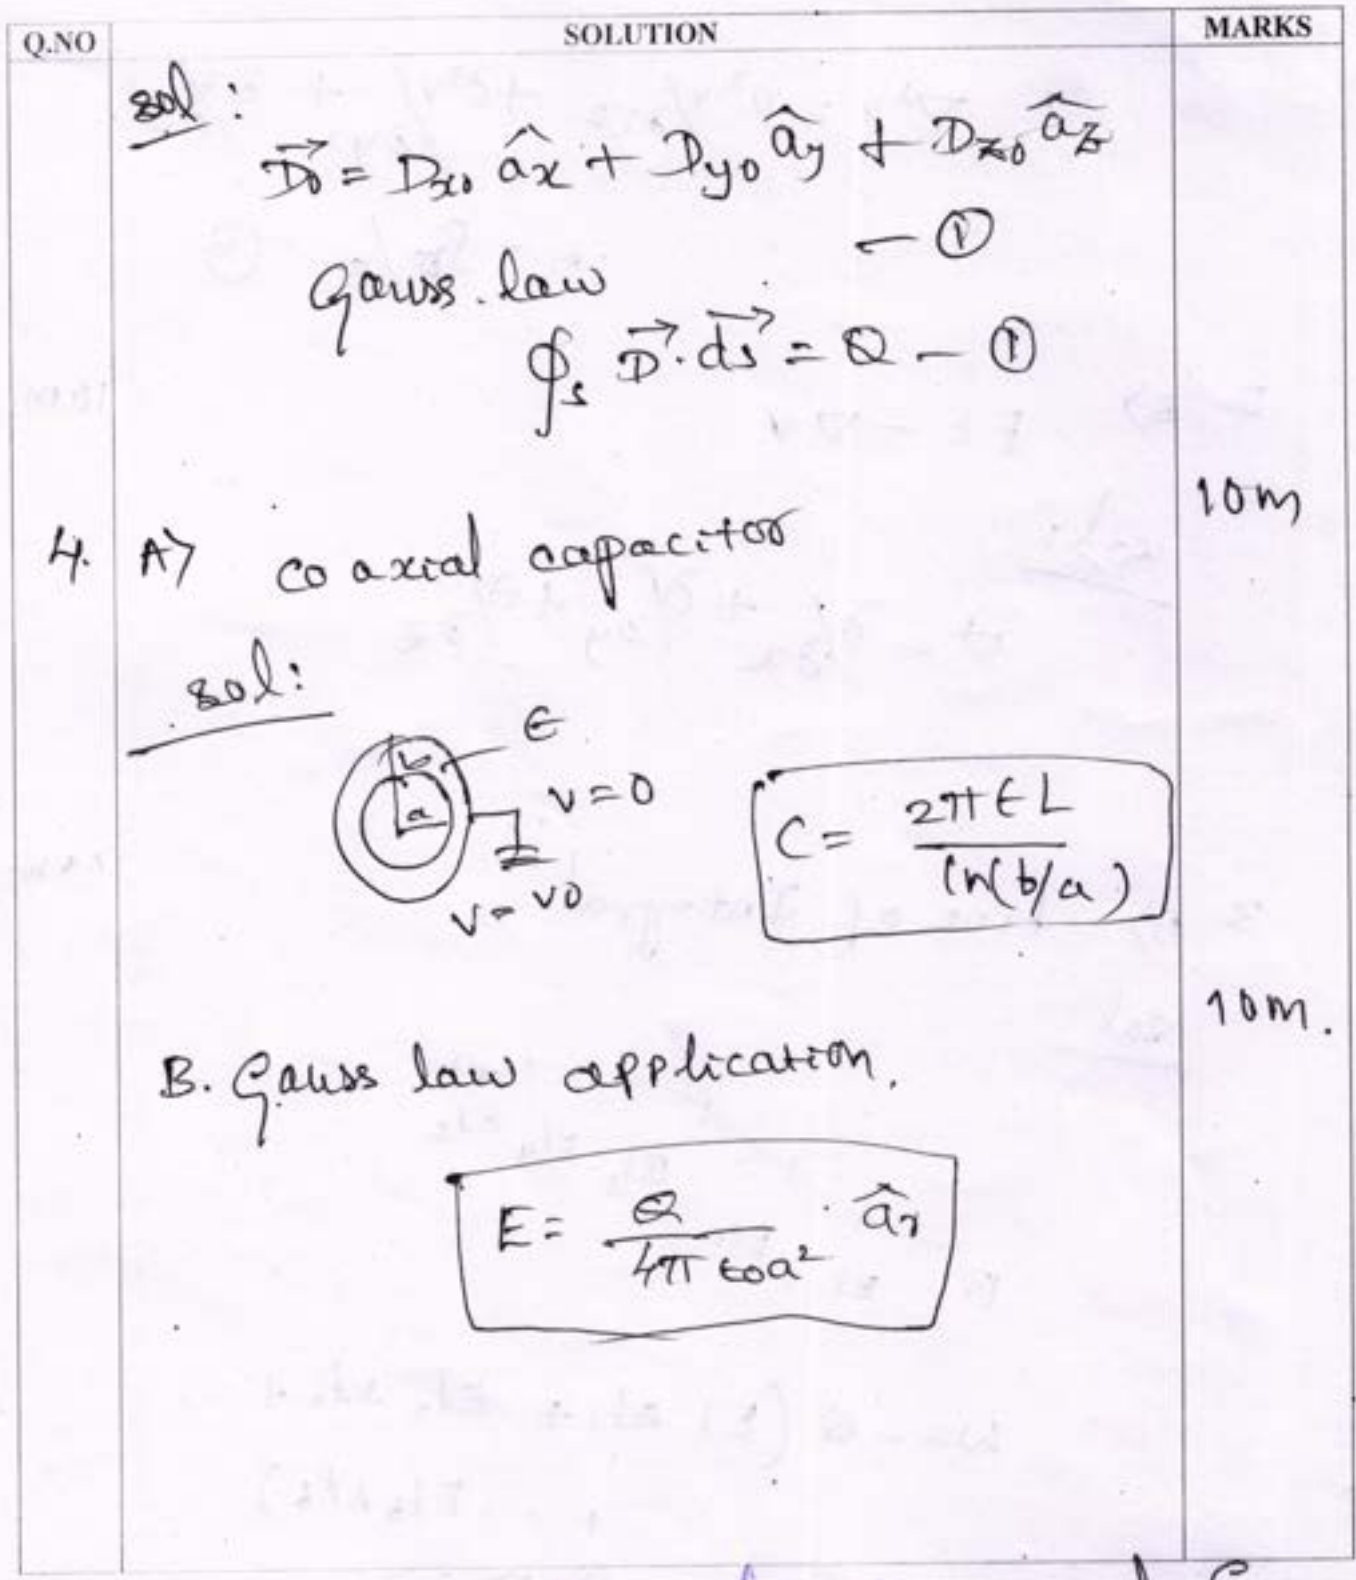 Q.NO SOLUTION MARKS
sol:
D₀⃗ = Dx₀ âx + Dy₀ ây + Dz₀ âz
– ①
Gauss law
∮s D⃗·ds⃗ = Q – ①
10m
4. A) co axial capacitor
sol:
b
E
a
V=0
V=V0
C = 2πεL / ln(b/a)
10m.
B. Gauss law application.
E = Q / 4πε0a² · âr